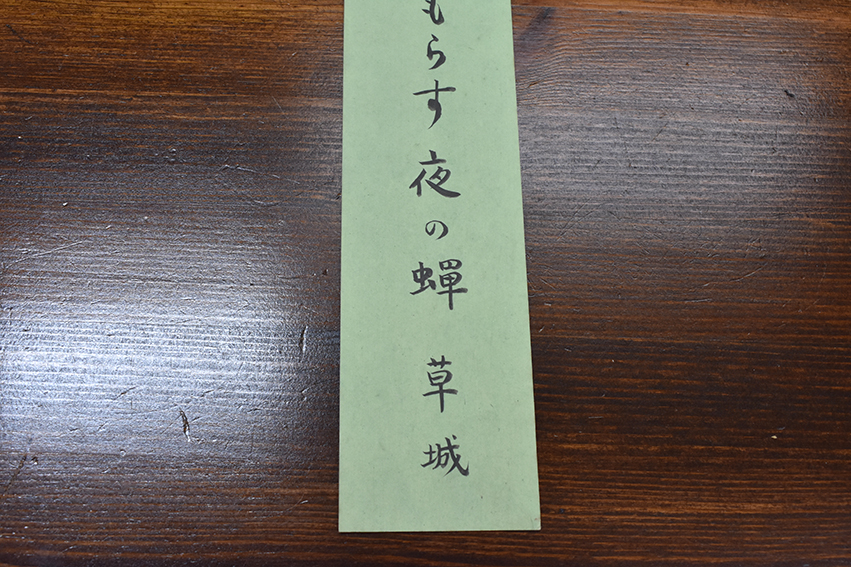 もらす夜の蟬 草城